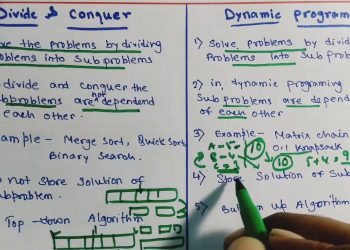 Divide & Conquer
ve the problems by dividing
roblems into Sub problems
divide and conquer the
subproblems are not dependend
each other.
ample - Merge sort, Quick sort
Binary search.
not store Solution of
ubproblem.
Top-down Algorithm
Dynamic program
1) Solve problems by divid
Problems into Subprobl
2) in dynamic programing
Sub problems are depend
of each other
3) Example - Matrix chain
0.1 Knapsack
A-5-
B-4-
10
10
5+4=9
4) Store Solution of Sub
5) Bottom Up Algorithm